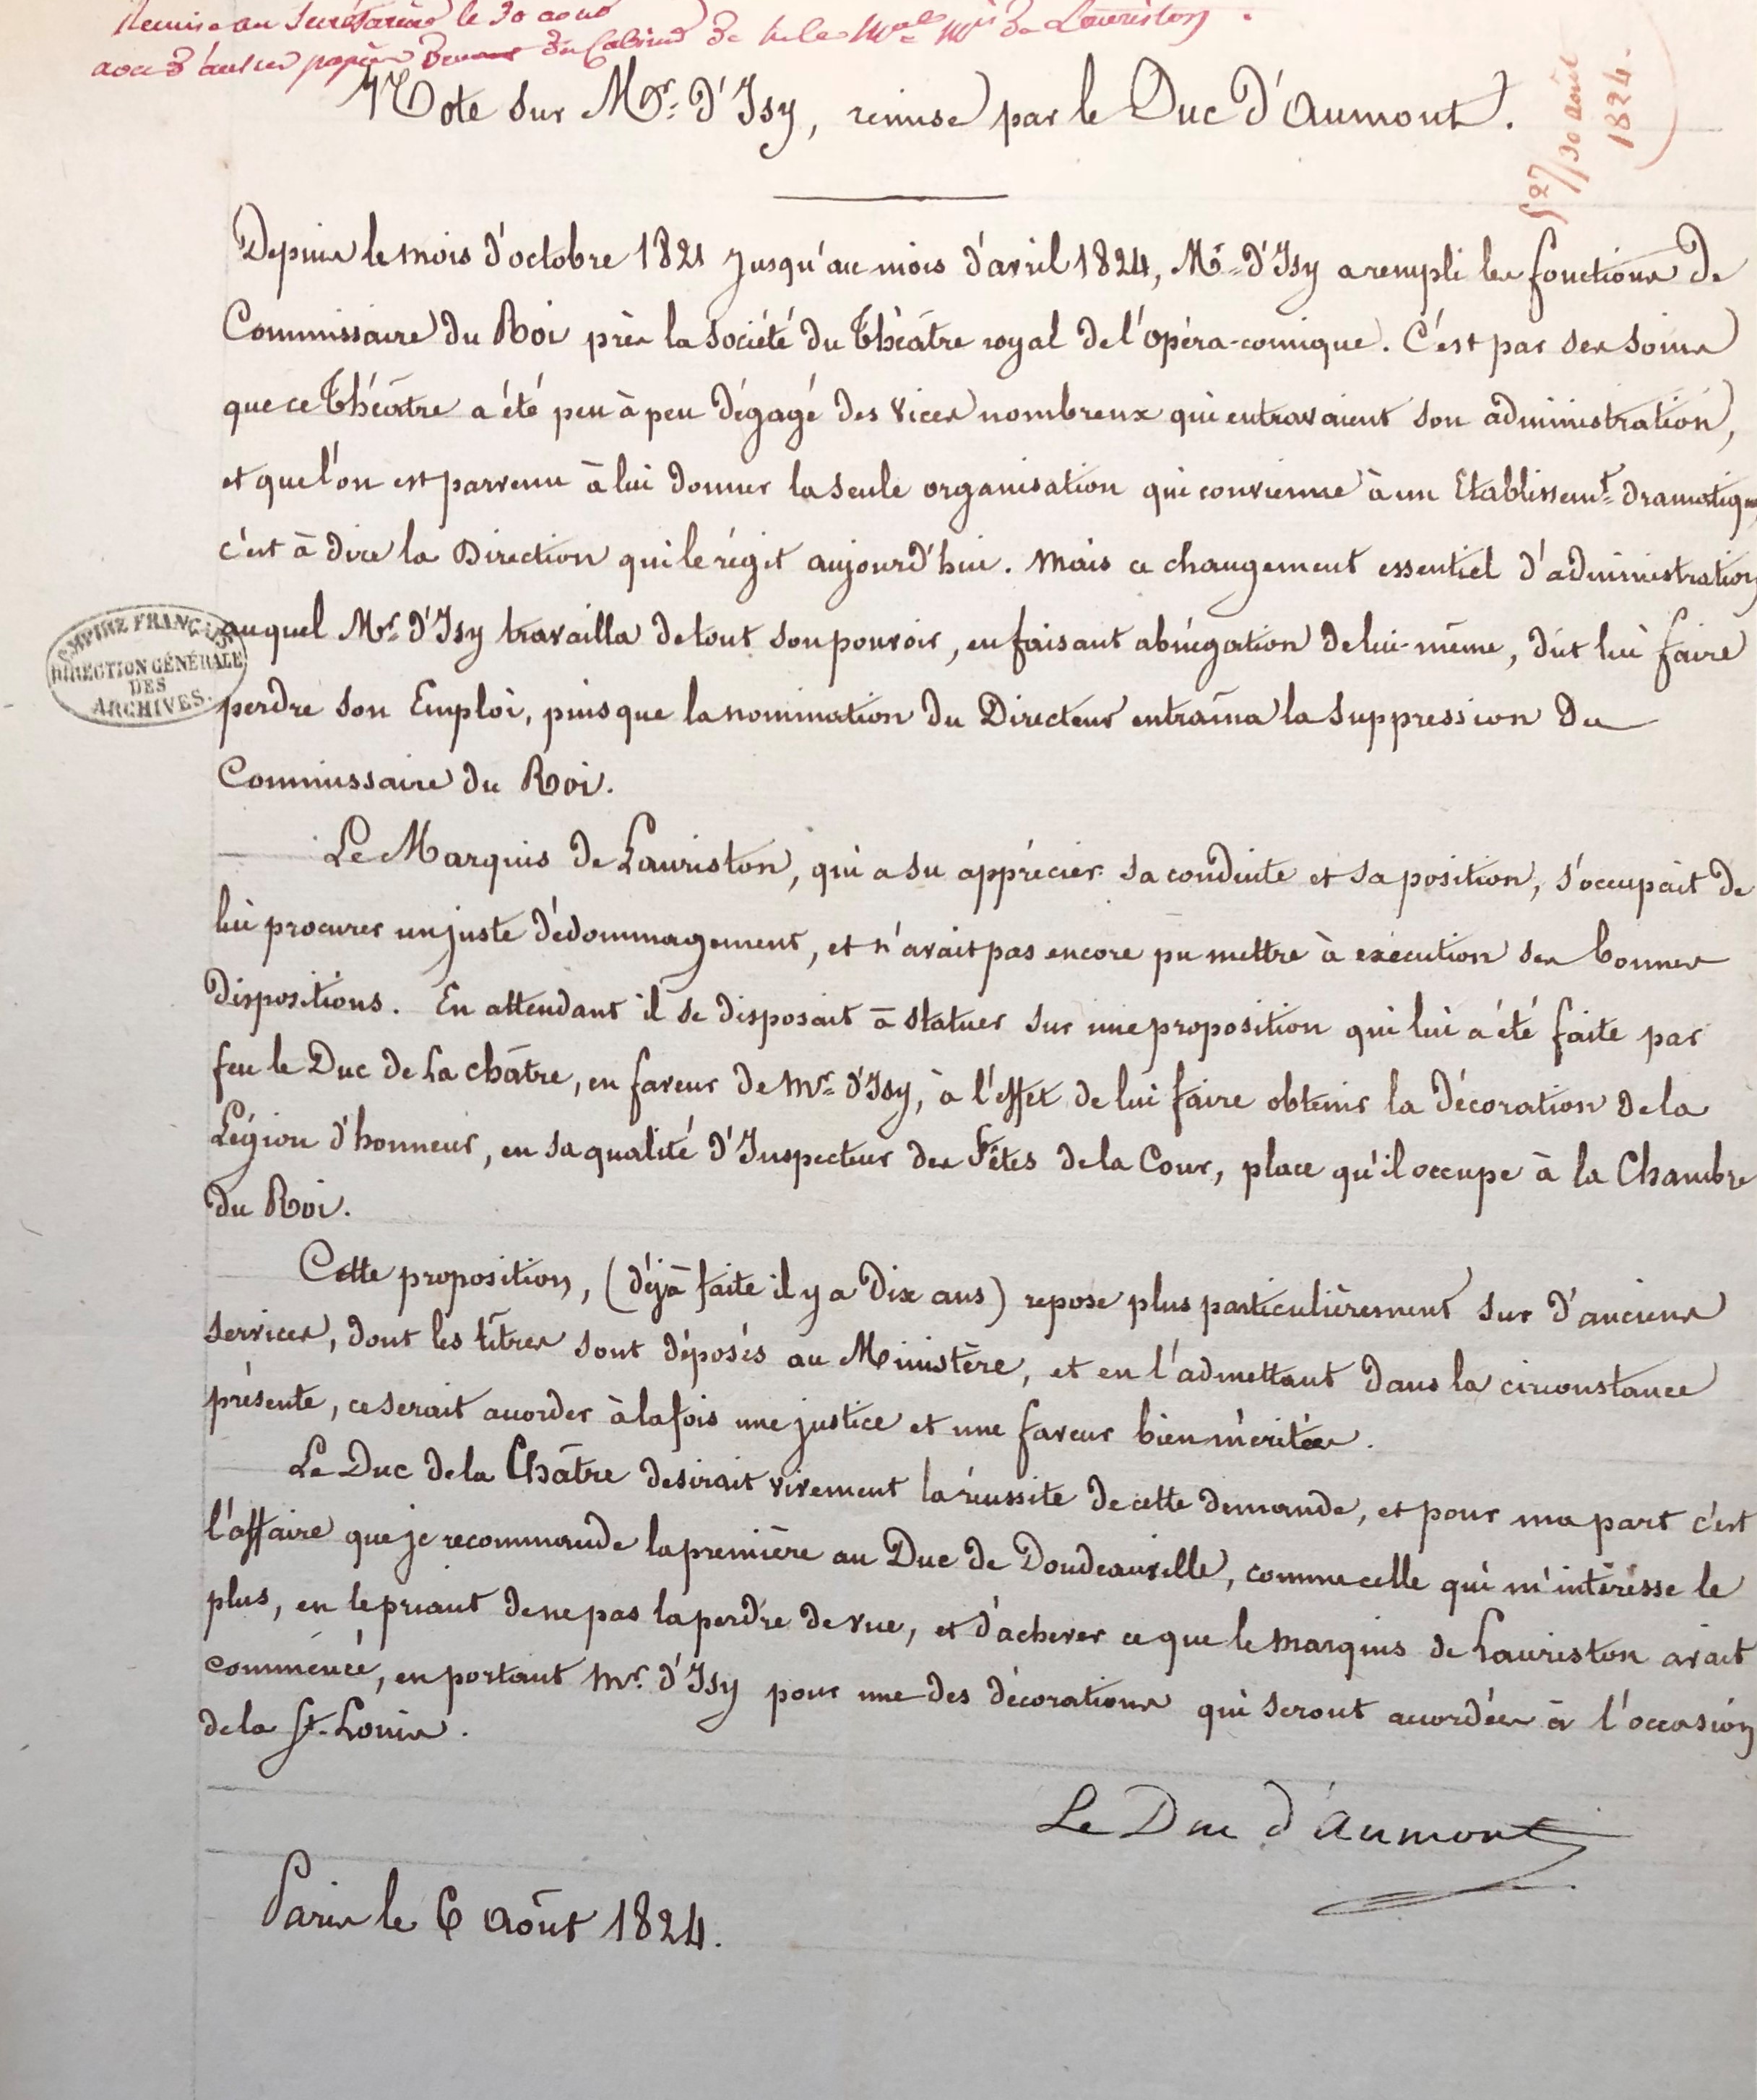 Remis au Secrétariat le 30 aout
avec d'autres papiers du Cabinet de M. le Mal Mis de Lauriston.
27/30 août
1824.
Note sur Mr. d'Isy, remise par le Duc d'Aumont.
Depuis le mois d'octobre 1821 jusqu'au mois d'avril 1824, Mr. d'Isy a rempli les fonctions de
Commissaire du Roi près la société du Théâtre royal de l'opéra-comique. C'est par ses soins
que ce Théâtre a été peu à peu dégagé des vices nombreux qui entravaient son administration,
et que l'on est parvenu à lui donner la seule organisation qui convienne à un Etablissemt. dramatique
c'est à dire la Direction qui le régit aujourd'hui. Mais ce changement essentiel d'administration
auquel Mr. d'Isy travailla de tout son pouvoir, en faisant abnégation de lui-même, dût lui faire
perdre son Emploi, puisque la nomination du Directeur entraîna la suppression du
Commissaire du Roi.
EMPIRE FRANÇAIS
DIRECTION GÉNÉRALE
DES
ARCHIVES.
Le Marquis de Lauriston, qui a su apprécier sa conduite et sa position, s'occupait de
lui procurer un juste dédommagement, et n'avait pas encore pu mettre à exécution ses bonnes
dispositions. En attendant il se disposait à statuer sur une proposition qui lui a été faite par
feu le Duc de La châtre, en faveur de Mr. d'Isy, à l'effet de lui faire obtenir la décoration de la
Légion d'honneur, en sa qualité d'Inspecteur des Fêtes de la Cour, place qu'il occupe à la Chambre
du Roi.
Cette proposition, (déjà faite il y a Dix ans) repose plus particulièrement sur d'anciens
services, dont les titres sont déposés au Ministère, et en l'admettant dans la circonstance
présente, ce serait accorder à la fois une justice et une faveur bien méritées.
Le Duc de la Châtre desirait vivement la réussite de cette demande, et pour ma part c'est
l'affaire que je recommande la première au Duc de Doudeauville, comme celle qui m'intéresse le
plus, en le priant de ne pas la perdre de vue, et d'achever ce que le marquis de Lauriston avait
commencé, en portant Mr. d'Isy pour une des décorations qui seront accordées à l'occasion
de la St. Louis.
Le Duc d'Aumont
Paris le 6 Août 1824.